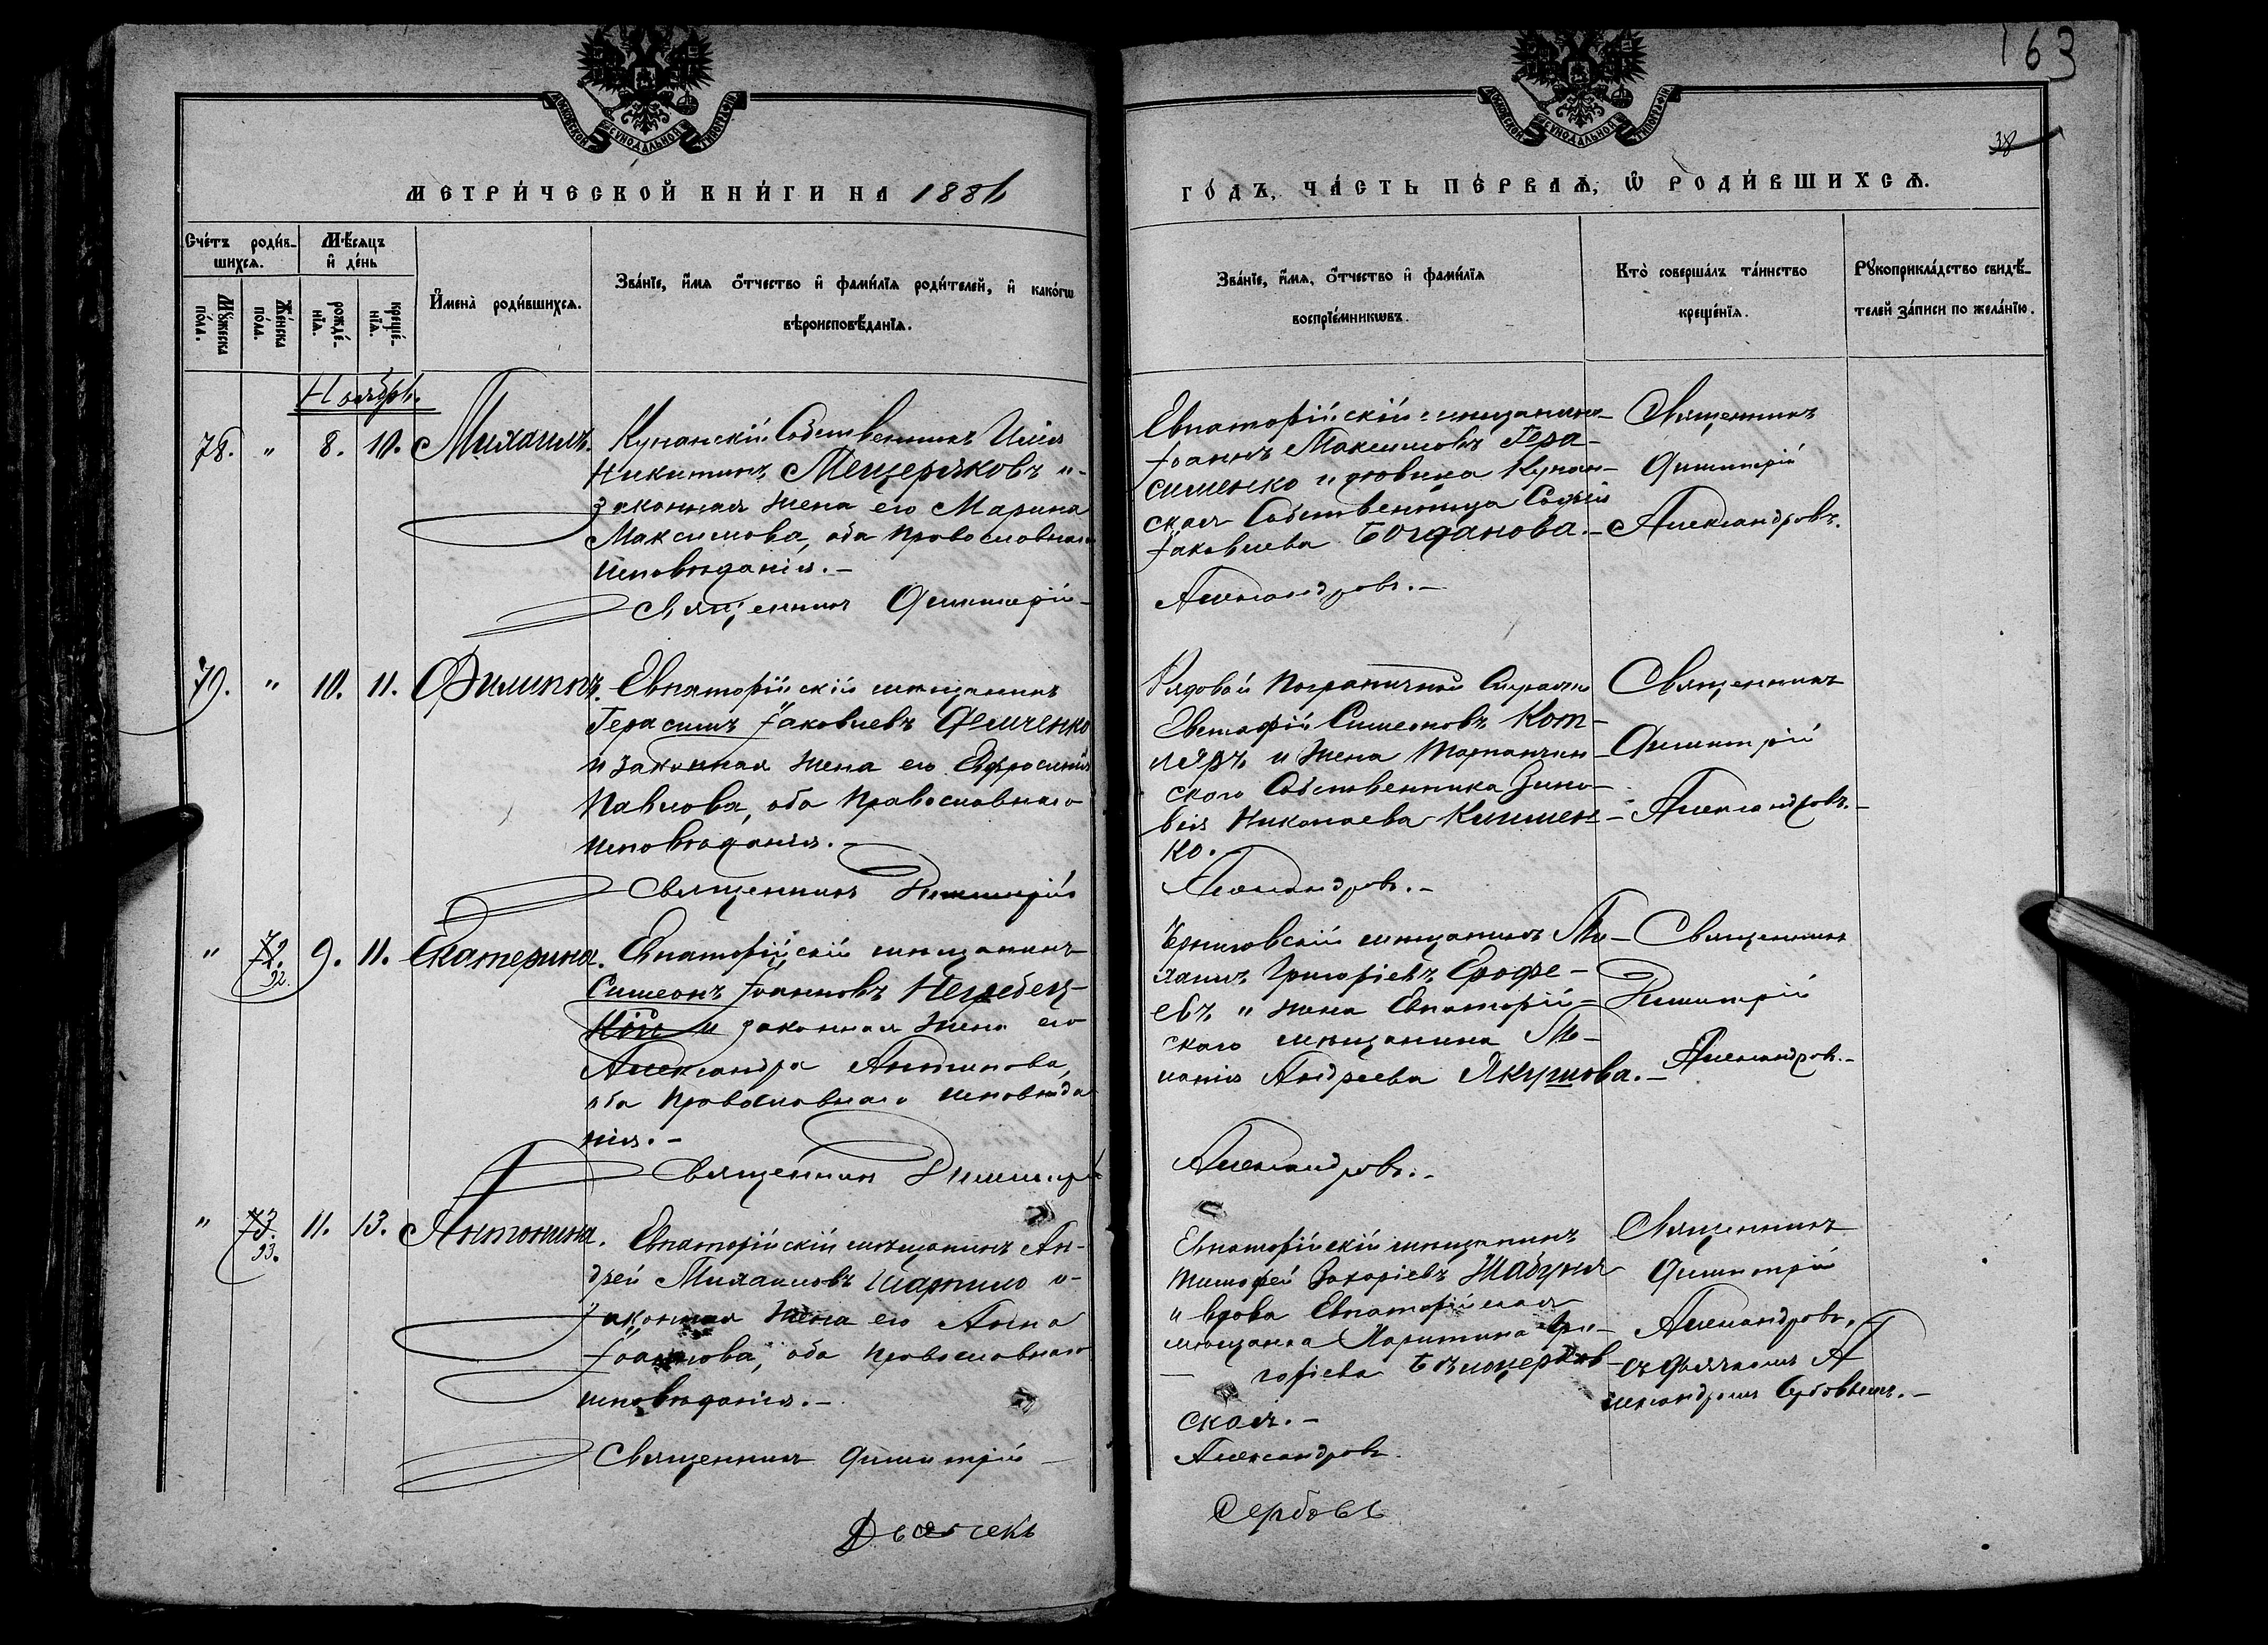 163
38
МОСКОВСКОЙ СѴНОДАЛЬНОЙ ТИПОГРАФІИ
МОСКОВСКОЙ СѴНОДАЛЬНОЙ ТИПОГРАФІИ
МЕТРИ́ЧЕСКОЙ КНИ́ГИ НА 1886
ГО́ДЪ, ЧА́СТЬ ПЕ́РВАѦ, Ѡ РОДИ́ВШИХСѦ.
Сче́тъ роди́в-
шихсѧ.
Мѣ́сѧцъ
и де́нь
Мꙋ́жеска
по́ла.
Же́нска
по́ла.
рожде́-
нїѧ.
креще́-
нїѧ.
Имена̀ роди́вшихсѧ.
Зва́нїе, и́мѧ о́тчество и фами́лїѧ роди́телей, и како́гѡ
вѣроисповѣ́данїѧ.
Зва́нїе, и́мѧ, о́тчество и фами́лїѧ
воспрїе́мникѡвъ.
Кто̀ соверша́лъ та́инство
креще́нїѧ.
Рꙋкоприкла́дство свидѣ́-
телей за́писи по жела́нїю.
Ноябрь.
78. " 8. 10. Михаилъ.
Кунанскій Собственникъ Илія
Никитинъ Мещеряковъ и
законная жена его Марина
Максимова, оба Православнаго
исповѣданія.-
Священникъ Димитрій
Евпаторійскій мѣщанинъ
Іоаннъ Максимовъ Гера-
сименко и дѣвица Кунан-
ская Собственница Софія
Іаковлева Богданова.-
Александровъ.-
Священникъ
Димитрій
Александровъ.
79. " 10. 11. Филиппъ.
Евпаторійскій мѣщанинъ
Герасимъ Іаковлевъ Демченко
и законная жена его Евфросинія
Павлова, оба Православнаго
исповѣданія.-
Священникъ Димитрій
Рядовой Пограничной Стражи
Евстафій Симеоновъ Кот-
ляръ и жена
скаго Собственника Зино-
вія Николаева Климен-
ко.
Александровъ.-
Священникъ
Димитрій
Александровъ.-
" 72. 92. 9. 11. Екатерина.
Евпаторійскій мѣщанинъ
Симеонъ Іоанновъ Негребец-
кій и законная жена его
Александра Антипова,
оба Православнаго исповѣда
нія.-
Священникъ Димитрій
Черниговскій мѣщанинъ Ми-
хаилъ Григоріевъ Ерофе-
евъ и жена Евпаторій-
скаго мѣщанина Ме-
ланія Андреева Якушова.-
Александровъ.-
Священникъ
Димитрій
Александровъ.-
" 73. 93. 11. 13. Антонина.
Евпаторійскій мѣщанинъ Ан-
дрей Михаиловъ Шарпило и
законная жена его Анна
Іоаннова, оба Православнаго
исповѣданія.-
Священникъ Димитрій
Дьячекъ
Евпаторійскій мѣщанинъ
Тимофей Захаріевъ Жабуня
и вдова Евпаторійская
мѣщанка Харитина Гри-
горіева Бѣлоцерков-
ская.-
Александровъ.
Сербовъ
Священникъ
Димитрій
Александровъ,
съ дьячкомъ А
лександромъ Сербовымъ.-